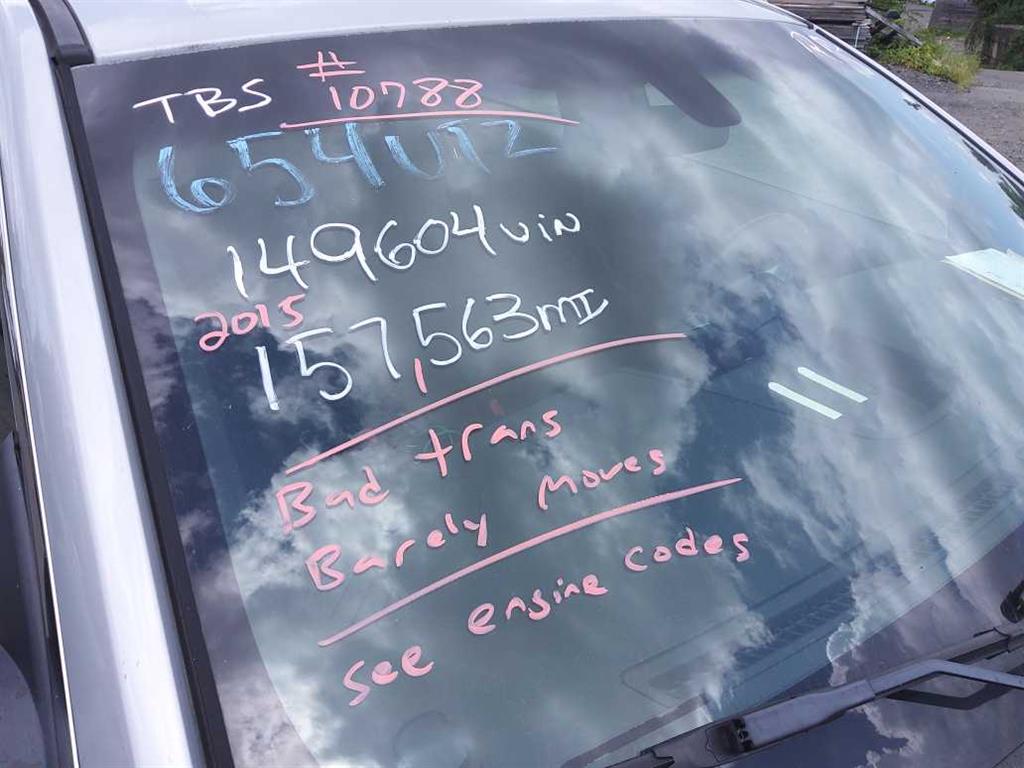 TBS # 10788
654UTZ
149604 VIN
2015
157,563 MI
Bad trans
Barely Moves
see engine codes